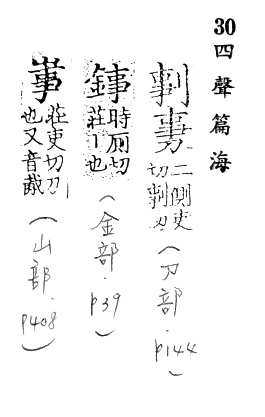 30
四聲篇海
剚
二側吏
切剚刃
(刀部．p144)
時厠切
莊丨也
(金部．p39)
莊吏切刀
也又音胾
(山部．p408)